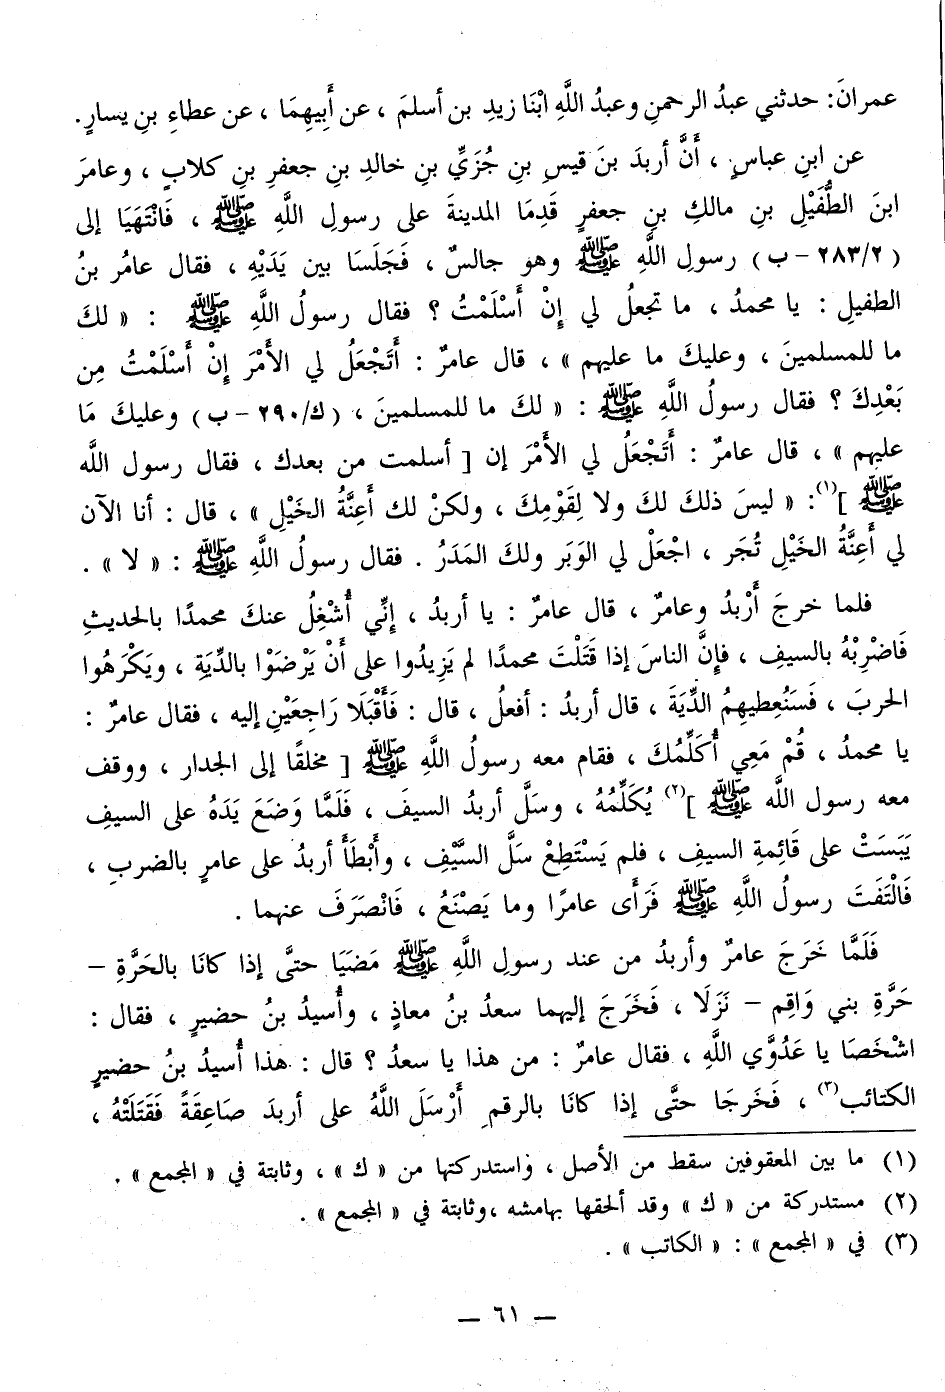 عمرانَ: حدثني عبدُ الرحمنِ وعبدُ اللَّهِ ابْنَا زيدِ بن أسلمَ ، عن أَبِيهِمَا ، عن عطاءِ بنِ يسارٍ .
عن ابنِ عباسٍ ، أَنَّ أربدَ بنَ قيسِ بنِ جُزَيِّ بنِ خالدِ بنِ جعفرِ بنِ كلابٍ ، وعامرَ
ابنَ الطُّفَيْلِ بنِ مالكِ بنِ جعفرٍ قَدِمَا المدينةَ على رسولِ اللَّهِ ﷺ ، فَانْتَهَيَا إلى
( ٢٨٣/٢ - ب ) رسولِ اللَّهِ ﷺ وهو جالسٌ ، فَجَلَسَا بين يَدَيْهِ ، فقال عامُر بنُ
الطفيلِ : يا محمدُ ، ما تجعلُ لي إِنْ أَسْلَمْتُ ؟ فقال رسولُ اللَّهِ ﷺ : « لكَ
ما للمسلمينَ ، وعليكَ ما عليهم » ، قال عامرٌ : أَتَجْعَلُ لي الأَمْرَ إِنْ أَسْلَمْتُ مِن
بَعْدِكَ ؟ فقال رسولُ اللَّهِ ﷺ : « لكَ ما للمسلمينَ ، (ك/٢٩٠ - ب) وعليكَ مَا
عليهم » ، قال عامرٌ : أَتَجْعَلُ لي الأَمْرَ إن [ أسلمت من بعدك ، فقال رسول اللَّه
ﷺ ](١): « ليسَ ذلكَ لكَ ولا لِقَوْمِكَ ، ولكنْ لك أَعِنَّةُ الخَيْلِ » ، قال : أنا الآن
لي أَعِنَّةُ الخَيْلِ تُجَر ، اجْعَلْ لي الوَبَر ولكَ المَدَرُ . فقال رسولُ اللَّهِ ﷺ : « لا » .
فلما خرجَ أَرْبدُ وعامرٌ ، قال عامرٌ : يا أربدُ ، إِنِّي أُشْغِلُ عنكَ محمدًا بالحديثِ
فَاضْرِبْهُ بالسيفِ ، فإِنَّ الناسَ إذا قَتَلْتَ محمدًا لم يَزِيدُوا على أَنْ يَرْضَوْا بالدِّيَةِ ، ويَكْرَهُوا
الحربَ ، فَسَنُعطِيهِمُ الدِّيَةَ ، قال أربدُ : أفعلُ ، قال : فَأَقْبَلَا رَاجِعَيْنِ إليه ، فقال عامرٌ :
يا محمدُ ، قُمْ مَعِي أُكَلِّمُكَ ، فقام معه رسولُ اللَّهِ ﷺ [ مخلقًا إلى الجدار ، ووقف
معه رسول اللَّه ﷺ ](٢) يُكَلِّمُهُ ، وسَلَّ أربدُ السيفَ ، فَلَمَّا وَضَعَ يَدَهُ على السيفِ
يَبَسَتْ على قَائِمةِ السيفِ ، فلم يَسْتَطِعْ سَلَّ السَّيْفِ ، وأَبْطَأَ أربدُ على عامرٍ بالضربِ ،
فَالْتَفَتَ رسولُ اللَّهِ ﷺ فَرَأى عامرًا وما يَصْنَعُ ، فَانْصَرَفَ عنهما .
فَلَمَّا خَرَجَ عامرٌ وأربدُ من عند رسولِ اللَّهِ ﷺ مَضَيَا حتىَّ إذا كانَا بالحَرَّةِ –
حَرَّةِ بني وَاقِم – نَزَلَا ، فَخَرَجَ إليهما سعدُ بنُ معاذٍ ، وأُسيدُ بنُ حضيرٍ ، فقال :
اشْخَصَا يا عَدُوَّي اللَّهِ ، فقال عامرٌ : من هذا يا سعدُ ؟ قال : هذا أُسيدُ بنُ حضيرٍ
الكتائب(٣) ، فَخَرجَا حتَّى إذا كانَا بالرقمِ أَرْسَلَ اللَّهُ على أربدَ صَاعِقَةً فَقَتَلَتْهُ ،
(١) ما بين المعقوفين سقط من الأصل ، واستدركتها من « ك » ، وثابتة في « المجمع » .
(٢) مستدركة من « ك » وقد ألحقها بهامشه ،وثابتة في « المجمع » .
(٣) في « المجمع » : « الكاتب » .
— ٦١ —